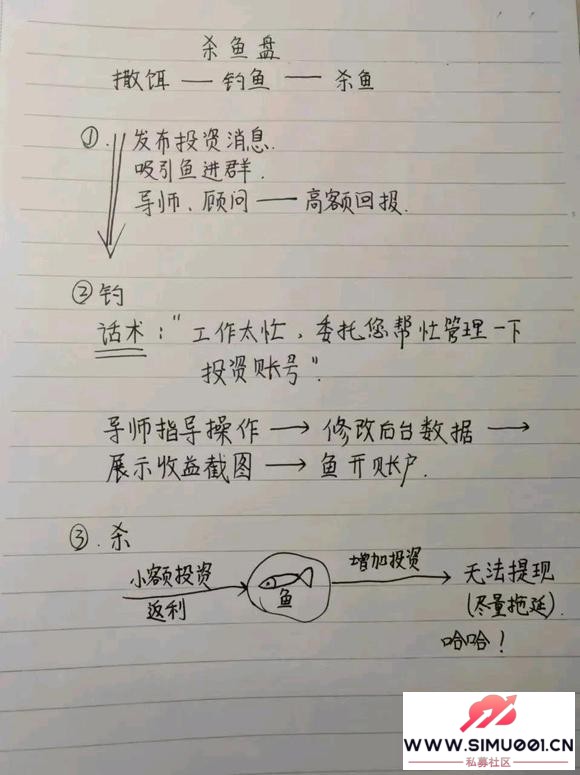 杀鱼盘
撒饵 — 钓鱼 — 杀鱼
①. 发布投资消息.
吸引鱼进群.
导师、顾问 — 高额回报.
② 钓
话术："工作太忙，委托您帮忙管理一下
投资账号".
导师指导操作 → 修改后台数据 →
展示收益截图 → 鱼开账户.
③. 杀
小额投资
返利
鱼
增加投资
无法提现
(尽量拖延).
哈哈！
WWW.SIMU001.CN
私募社区